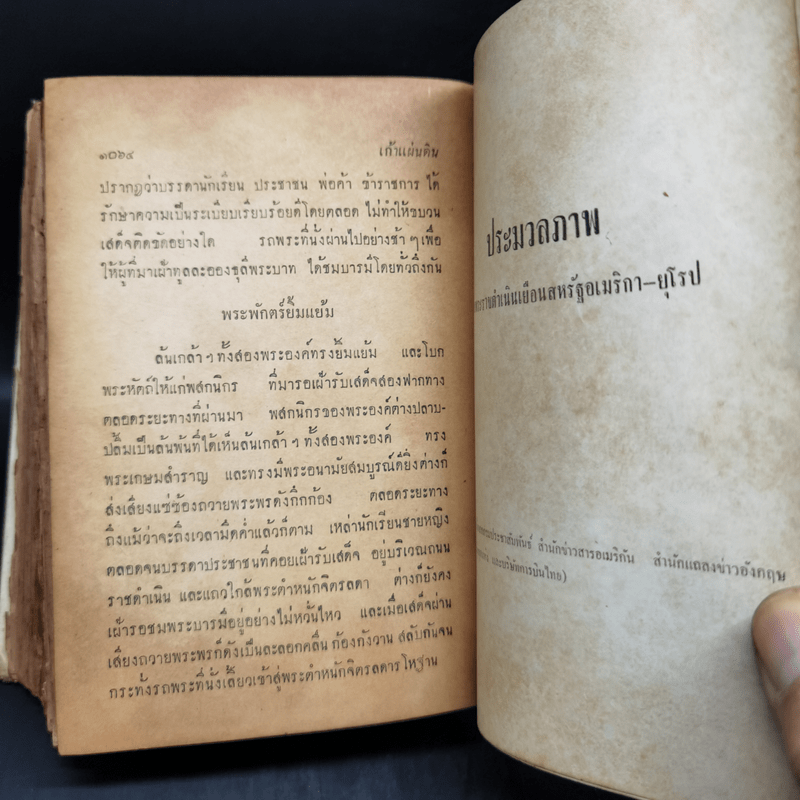 ๑๐๖๔ เก้าแผ่นดิน
ปรากฏว่าบรรดานักเรียน ประชาชน พ่อค้า ข้าราชการ ได้
รักษาความเป็นระเบียบเรียบร้อยดีโดยตลอด ไม่ทำให้ขบวน
เสด็จติดขัดอย่างใด รถพระที่นั่งผ่านไปอย่างช้า ๆ เพื่อ
ให้ผู้ที่มาเฝ้าทูลละอองธุลีพระบาท ได้ชมบารมีโดยทั่วถึงกัน
พระพักตร์ยิ้มแย้ม
ล้นเกล้า ฯ ทั้งสองพระองค์ทรงยิ้มแย้ม และโบก
พระหัตถ์ให้แก่พสกนิกร ที่มารอเฝ้ารับเสด็จสองฟากทาง
ตลอดระยะทางที่ผ่านมา พสกนิกรของพระองค์ต่างปลาบ-
ปลื้มเป็นล้นพ้นที่ได้เห็นล้นเกล้า ฯ ทั้งสองพระองค์ ทรง
พระเกษมสำราญ และทรงมีพระอนามัยสมบูรณ์ดียิ่งต่างก็
ส่งเสียงแซ่ซ้องถวายพระพรดังกึกก้อง ตลอดระยะทาง
ถึงแม้ว่าจะถึงเวลามืดค่ำแล้วก็ตาม เหล่านักเรียนชายหญิง
ตลอดจนบรรดาประชาชนที่คอยเฝ้ารับเสด็จ อยู่บริเวณถนน
ราชดำเนิน และแถวใกล้พระตำหนักจิตรลดา ต่างก็ยังคง
เฝ้ารอชมพระบารมีอยู่อย่างไม่หวั่นไหว และเมื่อเสด็จผ่าน
เสียงถวายพระพรก็ดังเป็นละลอกคลื่น ก้องกังวาน สลับกันจน
กระทั่งรถพระที่นั่งเลี้ยวเข้าสู่พระตำหนักจิตรลดารโหฐาน
ประมวลภาพ
ราชดำเนินเยือนสหรัฐอเมริกา–ยุโรป
ประชาสัมพันธ์ สำนักข่าวสารอเมริกัน สำนักแถลงข่าวอังกฤษ
และบริษัทการบินไทย)